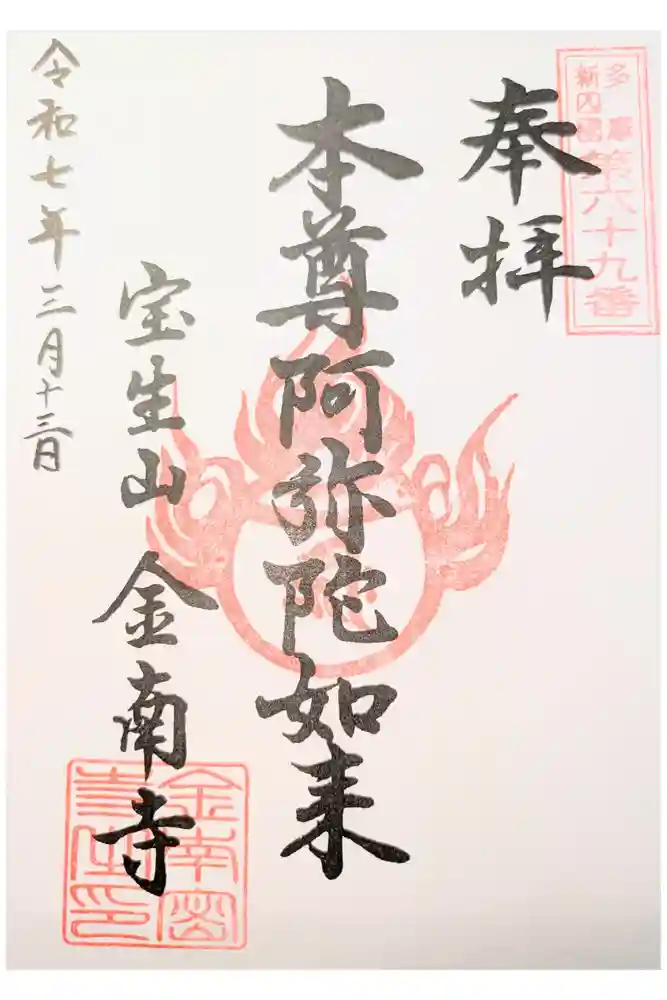 多摩
新四国
第六十九番
奉拝
本尊阿弥陀如来
宝生山 金南寺
令和七年三月十三日